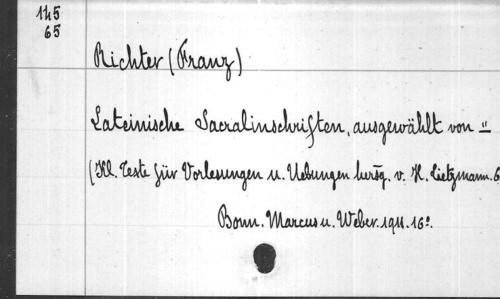 145
65
Richter (Franz)
Lateinische Sacralinschriften, ausgewählt von "
(Kl. Texte für Vorlesungen u. Uebungen hersg. v. H. Lietzmann. 6
Bonn. Marcus u. Weber. 1911. 16°.